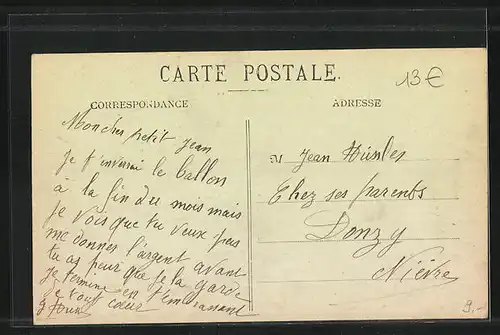 CARTE POSTALE.
13€
CORRESPONDANCE
ADRESSE
Moncher petit Jean
Je t'enverrai le ballon
à la fin du mois mais
je vois que tu veux pas
me donner l'argent avant
tu as peur que je la garde
je termine en t'embrassant
de tout cœur
M Jean
Chez ses parents
Donzy
Nièvre
9.-